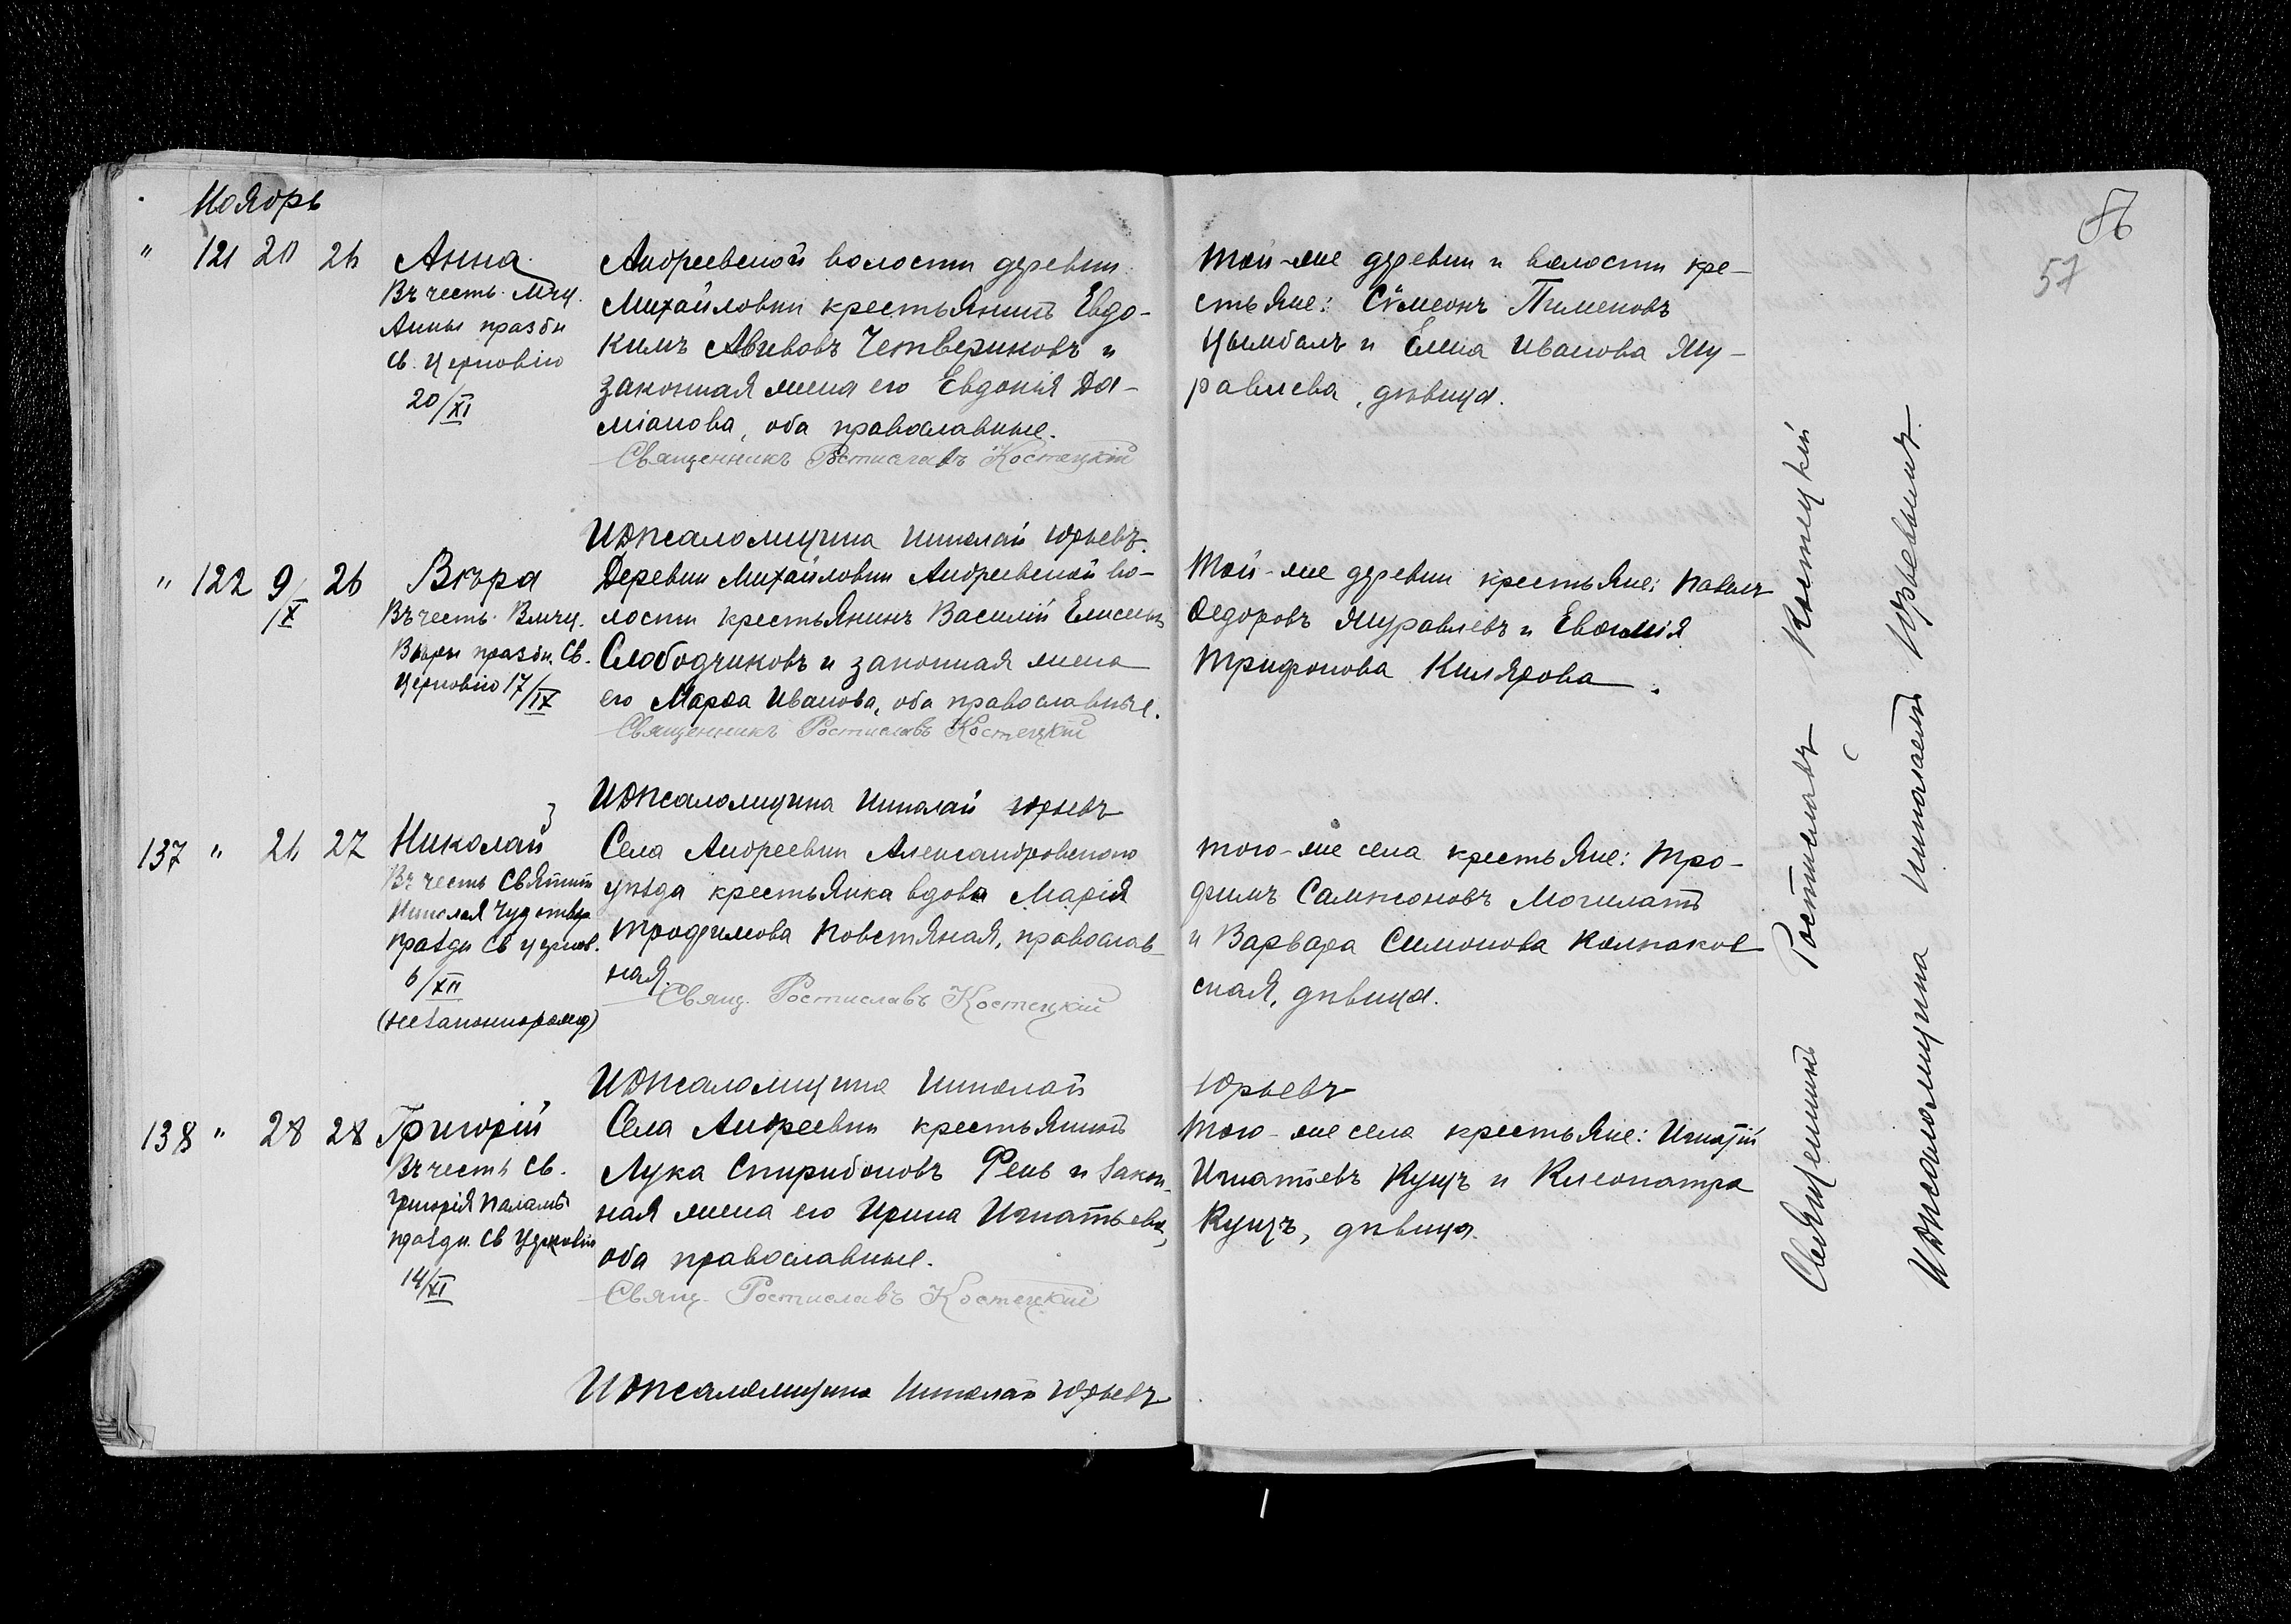 Ноябрь
" 121 20 26 Анна
Въ честь Мчц.
Анны праздн
Св. Церковію
20/XI
Андреевской волости деревни
Михайловки крестьянинъ Евдо-
кимъ Авивовъ Четвериковъ и
законная жена его Евдокія Да-
міанова, оба православные.
Священникъ Ростиславъ Костецкій
И д псаломщика Николай Юрьевъ.
Той-же деревни и волости кре-
стьяне: Сѵмеонъ Пименовъ
Цымбалъ и Елена Иванова Жу-
равлева, дѣвица.
" 122 9/IX 26 Вѣра
Въ честь Влмчц.
Вѣры праздн. Св.
Церковію 17/IX
Деревни Михайловки Андреевской во-
лости крестьянинъ Василій Елисеевъ
Слободчиковъ и законная жена
его Марѳа Иванова, оба православные.
Священникъ Ростиславъ Костецкій
И д псаломщика Николай Юрьевъ
Той-же деревни крестьяне: Павелъ
Ѳедоровъ Журавлевъ и Евѳимія
Трифонова Килярова.
137 " 26 27 Николай
Въ честь Святит
Николая Чудотвор
праздн Св церков.
6/XII
(незаконнорожд)
Села Андреевки Александровскаго
уѣзда крестьянка вдова Марія
Трофимова Повстяная, православ-
ная.
Свящ. Ростиславъ Костецкій
И д псаломщика Николай Юрьевъ
того-же села крестьяне: Тро-
фимъ Сампсоновъ Могилатъ
и Варвара Симонова Колпаков
ская, дѣвица.
138 " 28 28 Григорій
Въ честь Св.
Григорія Паламы
праздн. Св Церковію
14/XI
Села Андреевки крестьянинъ
Лука Спиридоновъ Рень и закон-
ная жена его Ирина Игнатьева,
оба православные.
Свящ. Ростиславъ Костецкій
И д псаломщика Николай Юрьевъ
Того-же села крестьяне: Игнатій
Игнатіевъ Кущъ и Клеопатра
Кущъ, дѣвица.
Священникъ Ростиславъ Костецкій
И д псаломщика Николай Юрьевъ
86
57